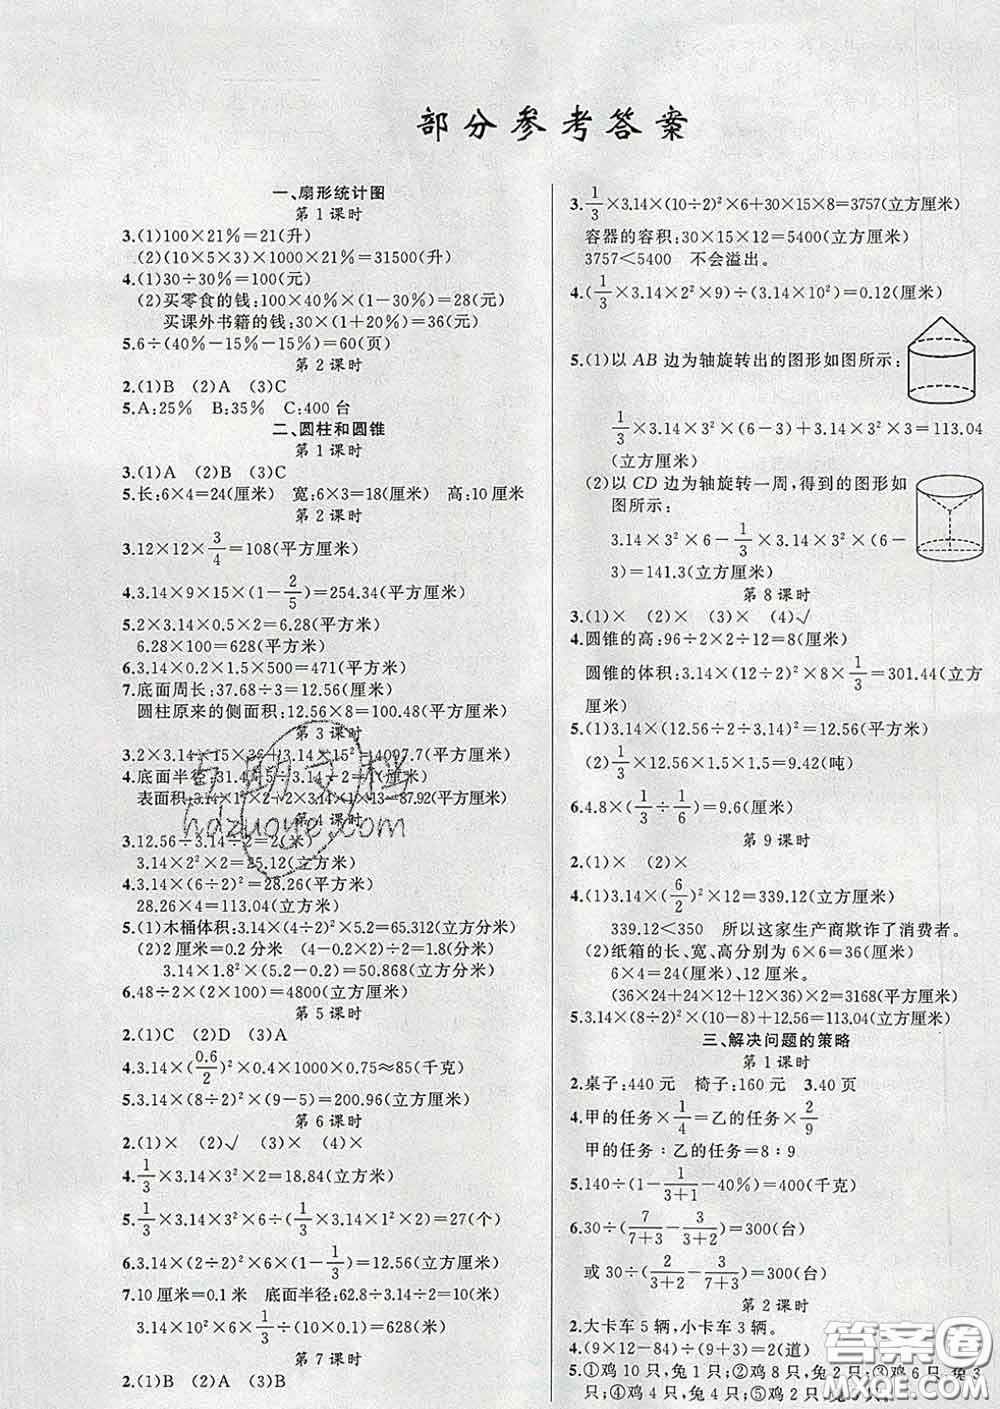 部分参考答案
一、扇形统计图
第1课时
3.(1)100×21%=21(升)
(2)(10×5×3)×1000×21%=31500(升)
4.(1)30÷30%=100(元)
(2)买零食的钱:100×40%×(1-30%)=28(元)
买课外书籍的钱:30×(1+20%)=36(元)
5.6÷(40%-15%-15%)=60(页)
第2课时
2.(1)B (2)A (3)C
5.A:25% B:35% C:400台
二、圆柱和圆锥
第1课时
3.(1)A (2)B (3)C
5.长:6×4=24(厘米) 宽:6×3=18(厘米) 高:10厘米
第2课时
3.12×12×3/4=108(平方厘米)
4.3.14×9×15×(1-2/5)=254.34(平方厘米)
5.2×3.14×0.5×2=6.28(平方米)
6.28×100=628(平方米)
6.3.14×0.2×1.5×500=471(平方米)
7.底面周长:37.68÷3=12.56(厘米)
圆柱原来的侧面积:12.56×8=100.48(平方厘米)
第3课时
3.2×3.14×15×36+3.14×15²=4097.7(平方厘米)
4.底面半径:31.4÷5÷3.14÷2=1(厘米)
表面积:3.14×1²×2+2×3.14×1×13=87.92(平方厘米)
第4课时
3.12.56÷3.14÷2=2(米)
3.14×2²×2=25.12(立方米)
4.3.14×(6÷2)²=28.26(平方米)
28.26×4=113.04(立方米)
5.(1)木桶体积:3.14×(4÷2)²×5.2=65.312(立方分米)
(2)2厘米=0.2分米 (4-0.2×2)÷2=1.8(分米)
3.14×1.8²×(5.2-0.2)=50.868(立方分米)
6.48÷2×(2×100)=4800(立方厘米)
第5课时
2.(1)C (2)D (3)A
4.3.14×(0.6/2)²×0.4×1000×0.75≈85(千克)
5.3.14×(8÷2)²×(9-5)=200.96(立方厘米)
第6课时
2.(1)× (2)√ (3)× (4)×
4.1/3×3.14×3²×2=18.84(立方米)
5.1/3×3.14×3²×6÷(1/3×3.14×1²×2)=27(个)
6.3.14×(2÷2)²×6×(1-1/3)=12.56(立方厘米)
7.10厘米=0.1米 底面半径:62.8÷3.14÷2=10(米)
3.14×10²×6×1/3÷(10×0.1)=628(米)
第7课时
2.(1)B (2)A (3)B
3.1/3×3.14×(10÷2)²×6+30×15×8=3757(立方厘米)
容器的容积:30×15×12=5400(立方厘米)
3757<5400 不会溢出。
4.(1/3×3.14×2²×9)÷(3.14×10²)=0.12(厘米)
5.(1)以AB边为轴旋转出的图形如图所示:
1/3×3.14×3²×(6-3)+3.14×3²×3=113.04
(立方厘米)
(2)以CD边为轴旋转一周,得到的图形如
图所示:
3.14×3²×6-1/3×3.14×3²×(6-
3)=141.3(立方厘米)
第8课时
3.(1)× (2)× (3)× (4)√
4.圆锥的高:96÷2×2÷12=8(厘米)
圆锥的体积:3.14×(12÷2)²×8×1/3=301.44(立方
厘米)
5.(1)3.14×(12.56÷2÷3.14)²=12.56(平方米)
(2)1/3×12.56×1.5×1.5=9.42(吨)
6.4.8×(1/3÷1/6)=9.6(厘米)
第9课时
2.(1)× (2)×
4.(1)3.14×(6/2)²×12=339.12(立方厘米)
339.12<350 所以这家生产商欺诈了消费者。
(2)纸箱的长、宽、高分别为6×6=36(厘米)、
6×4=24(厘米)、12厘米。
(36×24+24×12+36×12)×2=3168(平方厘米)
5.3.14×(8÷2)²×(10-8)+12.56=113.04(立方厘米)
三、解决问题的策略
第1课时
2.桌子:440元 椅子:160元 3.40页
4.甲的任务×1/4=乙的任务×2/9
甲的任务:乙的任务=8:9
5.140÷(1-1/(3+1)-40%)=400(千克)
6.30÷(7/(7+3)-3/(3+2))=300(台)
或30÷(2/(3+2)-3/(7+3))=300(台)
第2课时
2.大卡车5辆,小卡车3辆。
4.(9×12-84)÷(9+3)=2(道)
5.①鸡10只,兔1只;②鸡8只,兔2只;③鸡6只,兔3
只;④鸡4只,兔4只;⑤鸡2只,兔5只。
互助文档
hdzuoye.com
答案圈
MXQE.COM